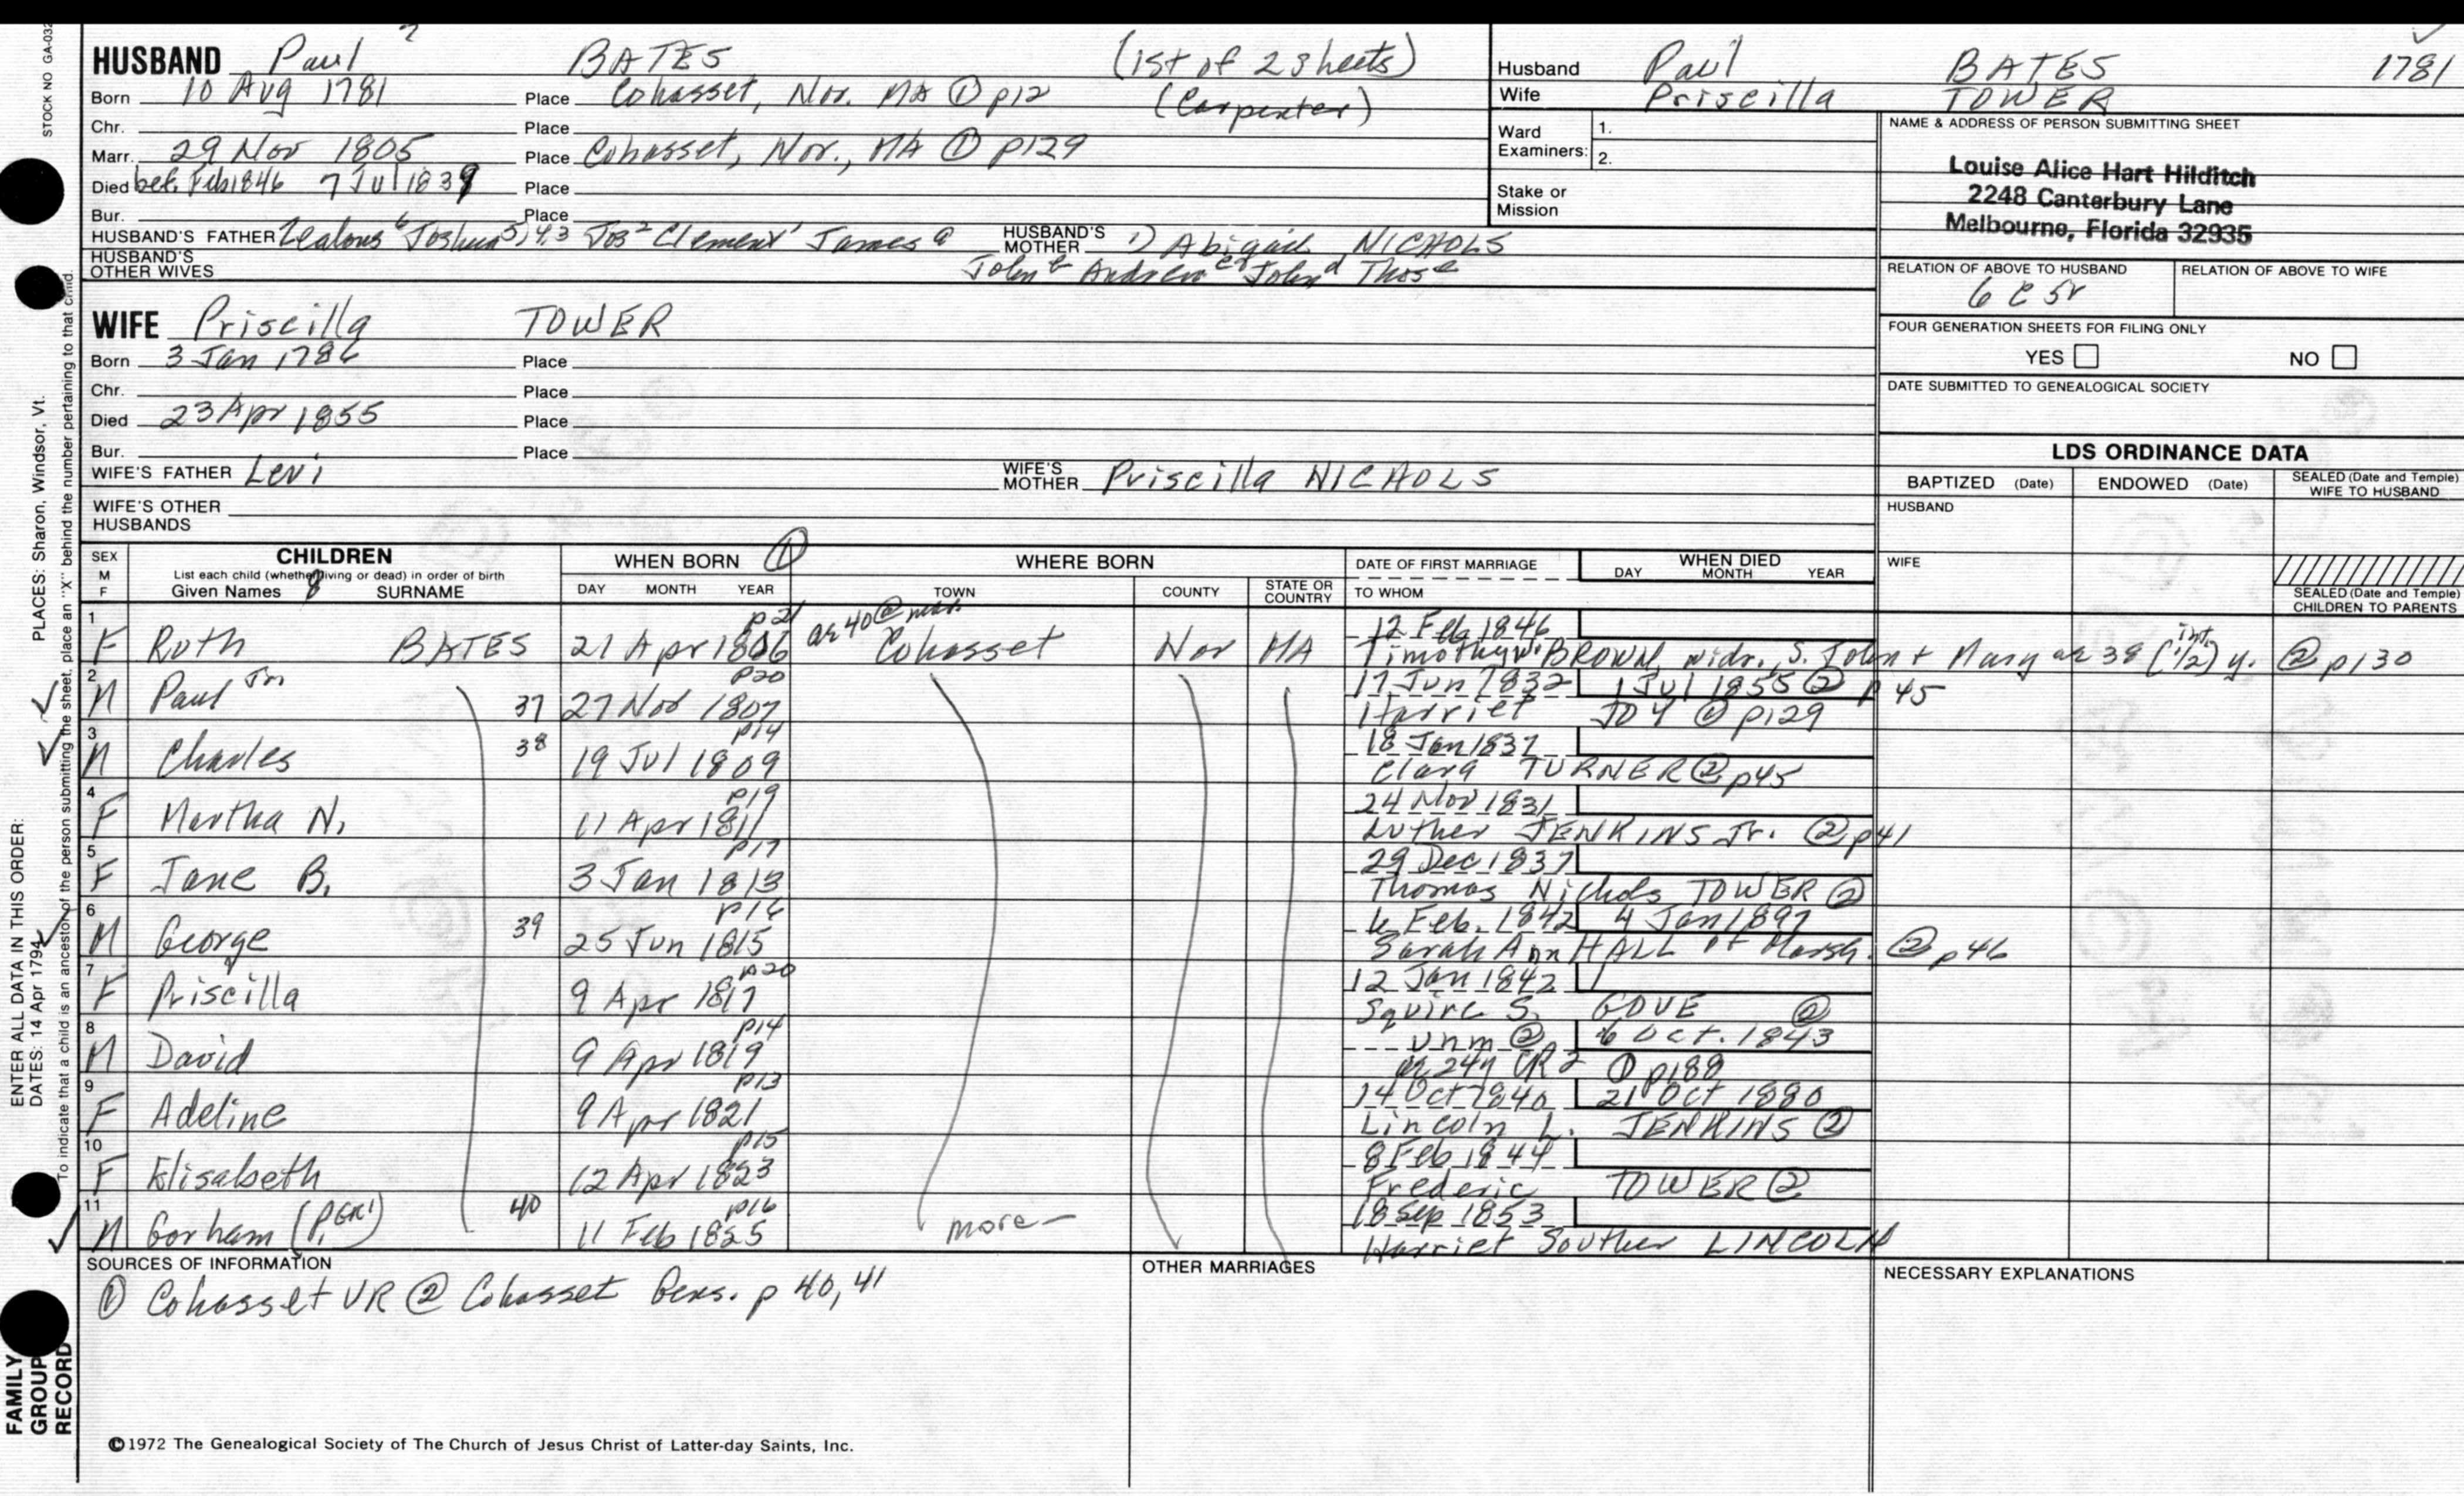 STOCK NO GA-032
HUSBAND Paul 7 BATES (1st of 2 sheets)
Born 10 Aug 1781 Place Cohasset, Nor. MA ① p12 (Carpenter)
Chr. Place
Marr. 29 Nov 1805 Place Cohasset, Nor., MA ① p129
Died bef. Feb 1846 7 Jul 1839 Place
Bur. Place
HUSBAND'S FATHER Zealous 6 Joshua 5,4,3 Jos 2 Clement 1 James a HUSBAND'S MOTHER 1) Abigail NICHOLS
HUSBAND'S OTHER WIVES John b Andrew c John d Thos e
Husband Paul BATES 1781
Wife Priscilla TOWER
Ward Examiners: 1.
2.
Stake or Mission
NAME & ADDRESS OF PERSON SUBMITTING SHEET
Louise Alice Hart Hilditch
2248 Canterbury Lane
Melbourne, Florida 32935
RELATION OF ABOVE TO HUSBAND RELATION OF ABOVE TO WIFE
6 C 5r
FOUR GENERATION SHEETS FOR FILING ONLY
YES NO
DATE SUBMITTED TO GENEALOGICAL SOCIETY
WIFE Priscilla TOWER
Born 3 Jan 1786 Place
Chr. Place
Died 23 Apr 1855 Place
Bur. Place
WIFE'S FATHER Levi WIFE'S MOTHER Priscilla NICHOLS
WIFE'S OTHER HUSBANDS
LDS ORDINANCE DATA
BAPTIZED (Date) ENDOWED (Date) SEALED (Date and Temple) WIFE TO HUSBAND
HUSBAND
WIFE
SEALED (Date and Temple) CHILDREN TO PARENTS
SEX M F CHILDREN WHEN BORN ① WHERE BORN DATE OF FIRST MARRIAGE WHEN DIED
List each child (whether living or dead) in order of birth DAY MONTH YEAR
Given Names SURNAME DAY MONTH YEAR TOWN COUNTY STATE OR COUNTRY TO WHOM
1 p21 ae 40 @ mar. 12 Feb 1846
F Ruth BATES 21 Apr 1806 Cohasset Nor MA Timothy W. BROWN, widr., S. John + Mary ae 38 (int 1/2) y. @ p130
2 p20 17 Jun 1832 1 Jul 1855 ② p45
M Paul Jr 37 27 Nov 1807 Harriet JOY ① p129
3 p14 18 Jan 1837
M Charles 38 19 Jul 1809 Clara TURNER ② p45
4 p19 24 Nov 1831
F Martha N. 11 Apr 1811 Luther JENKINS Jr. ② p41
5 p17 29 Dec 1837
F Jane B. 3 Jan 1813 Thomas Nichols TOWER ②
6 p16 6 Feb. 1842 4 Jan 1897
M George 39 25 Jun 1815 Sarah Ann HALL of Marsh. ② p46
7 p20 12 Jan 1842
F Priscilla 9 Apr 1817 Squire S. GOVE ②
8 p14 unm ② 6 Oct. 1843
M David 9 Apr 1819 ae 24y CR2 ① p188
9 p13 14 Oct 1840 21 Oct 1880
F Adeline 9 Apr 1821 Lincoln L. JENKINS ②
10 p15 8 Feb 1844
F Elisabeth 12 Apr 1823 Frederic TOWER ②
11 p16 18 Sep 1853
M Gorham (P. GR1) 40 11 Feb 1825 more— Harriet Souther LINCOLN
SOURCES OF INFORMATION OTHER MARRIAGES NECESSARY EXPLANATIONS
① Cohasset VR ② Cohasset Gens. p 40, 41
©1972 The Genealogical Society of The Church of Jesus Christ of Latter-day Saints, Inc.
FAMILY GROUP RECORD
ENTER ALL DATA IN THIS ORDER:
DATES: 14 Apr 1794
PLACES: Sharon, Windsor, Vt.
To indicate that a child is an ancestor of the person submitting the sheet, place an "X" behind the number pertaining to that child.